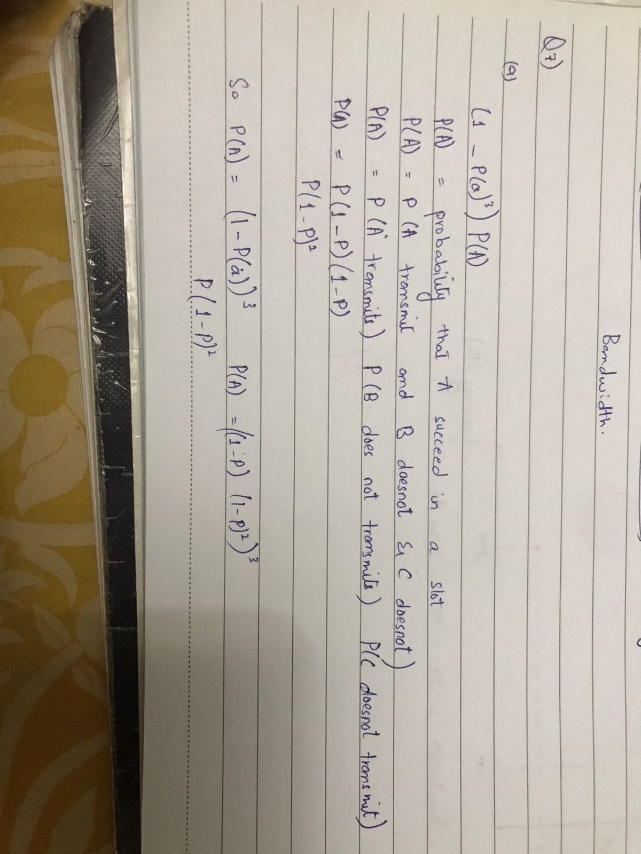 Bandwidth.
Q7)
(a)
(1 - P(a)³) P(A)
P(A) = probability that A succeed in a slot
P(A) = P (A transmit and B doesnot & C doesnot)
P(A) = P (A transmits) P (B does not transmits) P(C doesnot transmit)
P(A) = P(1-P)(1-P)
P(1-P)²
So P(A) = (1-P(a))³ P(A) = (1-P) (1-P)²)³
P(1-P)²